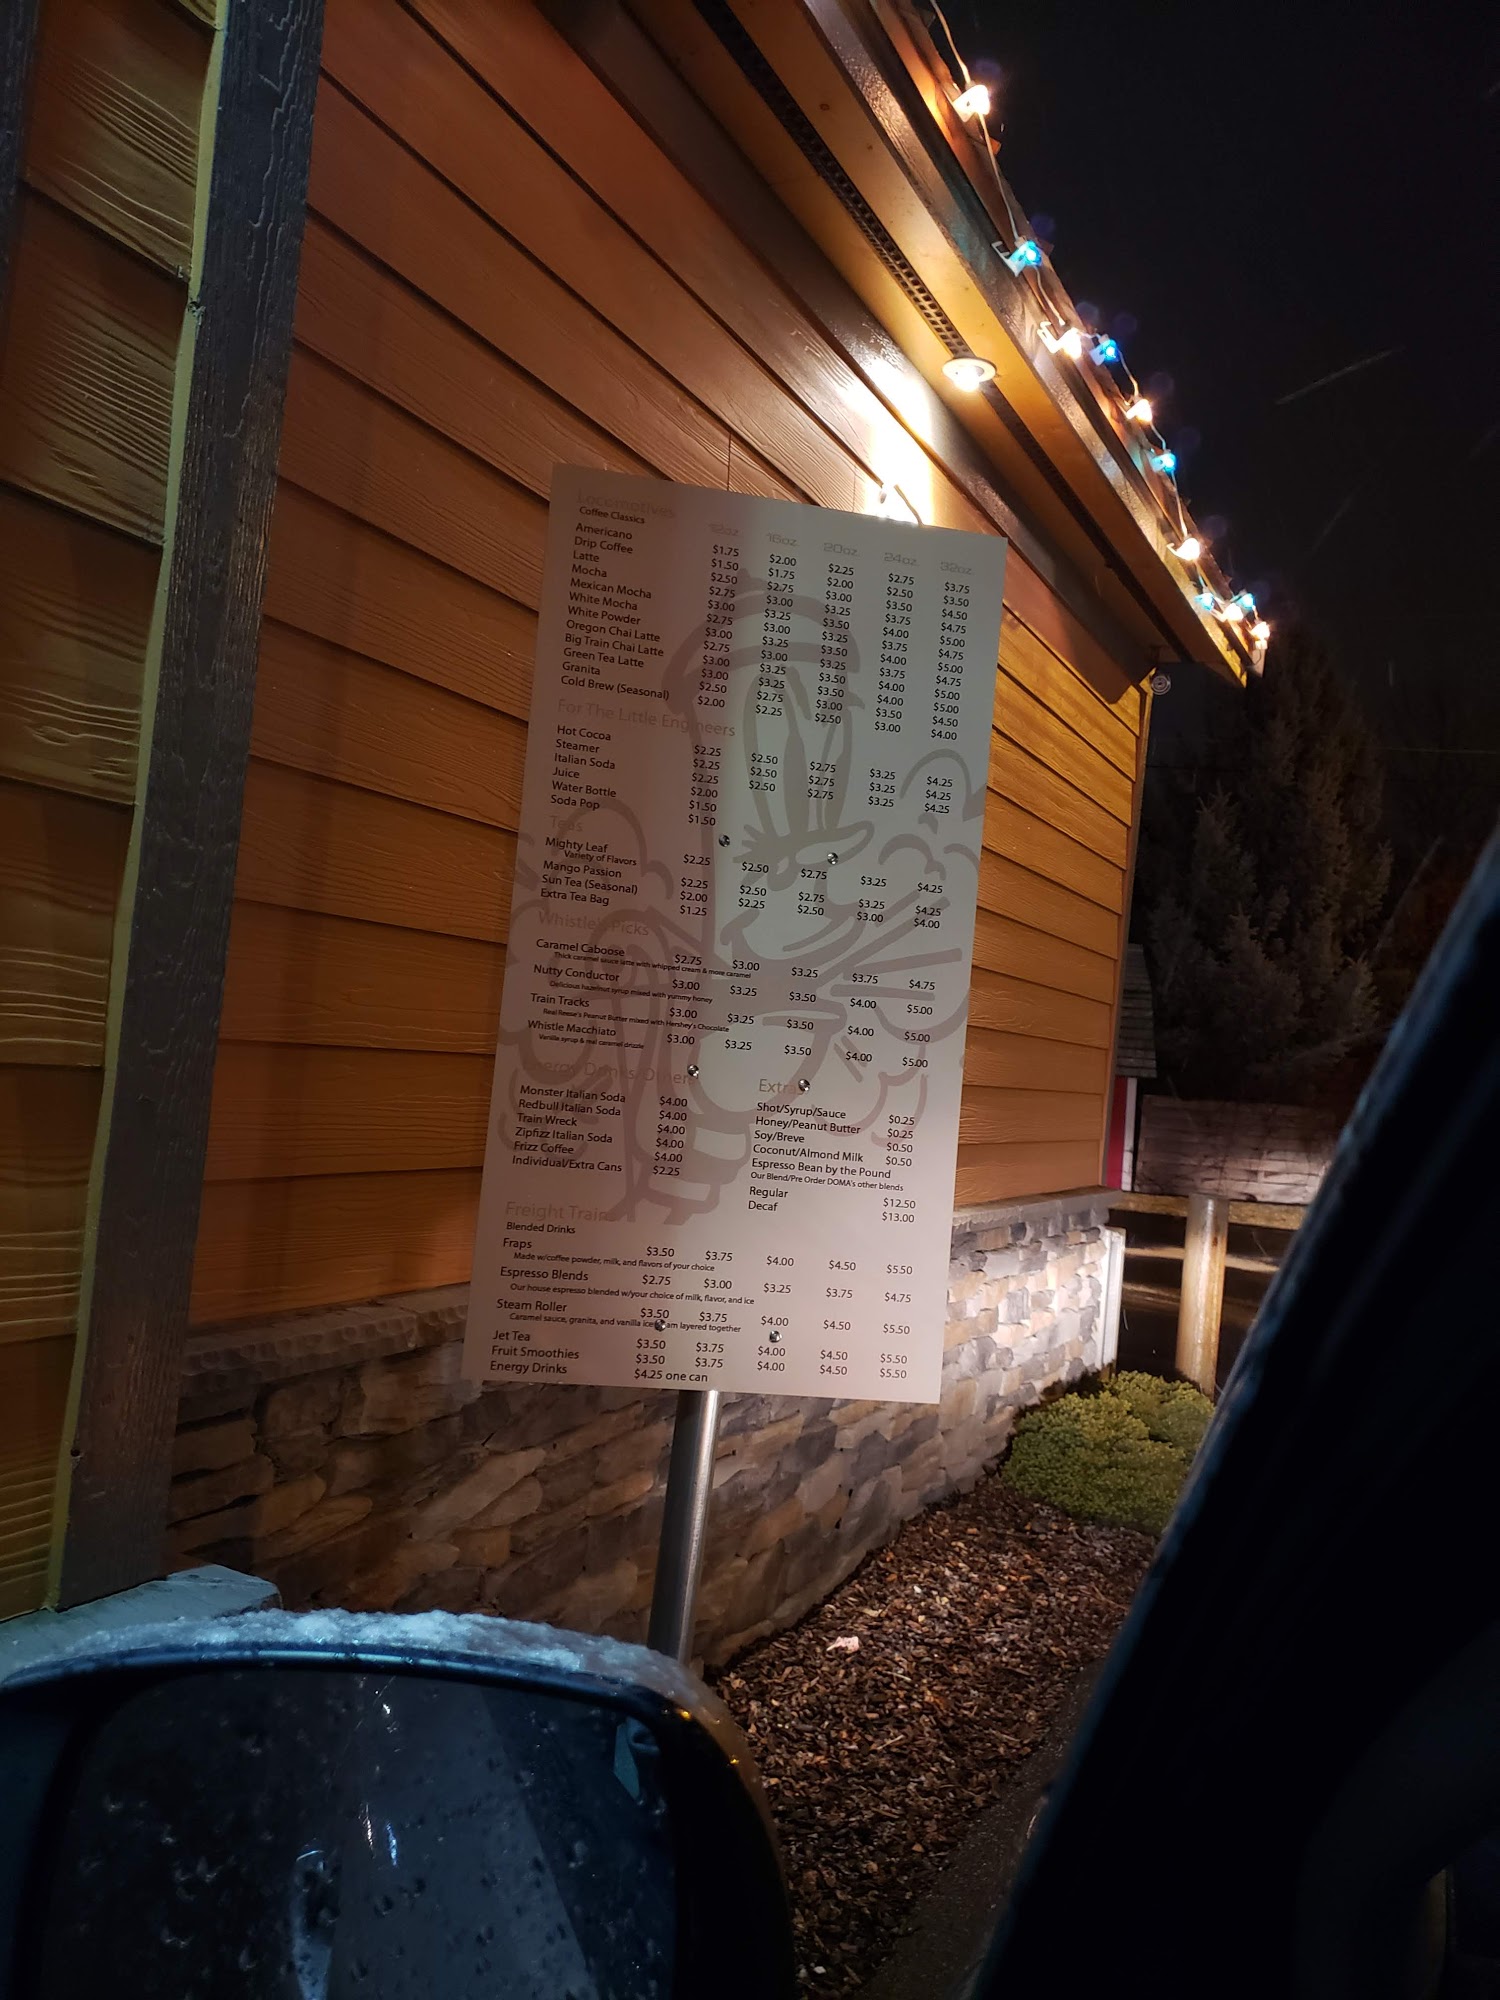 Locomotives
Coffee Classics
12oz 16oz 20oz 24oz 32oz
Americano $1.75 $2.00 $2.25 $2.75 $3.75
Drip Coffee $1.50 $1.75 $2.00 $2.50 $3.50
Latte $2.50 $2.75 $3.00 $3.50 $4.50
Mocha $2.75 $3.00 $3.25 $3.75 $4.75
Mexican Mocha $3.00 $3.25 $3.50 $4.00 $5.00
White Mocha $2.75 $3.00 $3.25 $3.75 $4.75
White Powder $3.00 $3.25 $3.50 $4.00 $5.00
Oregon Chai Latte $2.75 $3.00 $3.25 $3.75 $4.75
Big Train Chai Latte $3.00 $3.25 $3.50 $4.00 $5.00
Green Tea Latte $3.00 $3.25 $3.50 $4.00 $5.00
Granita $2.50 $2.75 $3.00 $3.50 $4.50
Cold Brew (Seasonal) $2.00 $2.25 $2.50 $3.00 $4.00
For The Little Engineers
Hot Cocoa $2.25 $2.50 $2.75 $3.25 $4.25
Steamer $2.25 $2.50 $2.75 $3.25 $4.25
Italian Soda $2.25 $2.50 $2.75 $3.25 $4.25
Juice $2.00
Water Bottle $1.50
Soda Pop $1.50
Teas
Mighty Leaf $2.25 $2.50 $2.75 $3.25 $4.25
Variety of Flavors
Mango Passion $2.25 $2.50 $2.75 $3.25 $4.25
Sun Tea (Seasonal) $2.00 $2.25 $2.50 $3.00 $4.00
Extra Tea Bag $1.25
Whistle's Picks
Caramel Caboose $2.75 $3.00 $3.25 $3.75 $4.75
Thick caramel sauce latte with whipped cream & more caramel
Nutty Conductor $3.00 $3.25 $3.50 $4.00 $5.00
Delicious hazelnut syrup mixed with yummy honey
Train Tracks $3.00 $3.25 $3.50 $4.00 $5.00
Real Reese's Peanut Butter mixed with Hershey's Chocolate
Whistle Macchiato $3.00 $3.25 $3.50 $4.00 $5.00
Vanilla syrup & real caramel drizzle
Energy Drinks/Other
Monster Italian Soda $4.00
Redbull Italian Soda $4.00
Train Wreck $4.00
Zipfizz Italian Soda $4.00
Frizz Coffee $4.00
Individual/Extra Cans $2.25
Extra
Shot/Syrup/Sauce $0.25
Honey/Peanut Butter $0.25
Soy/Breve $0.50
Coconut/Almond Milk $0.50
Espresso Bean by the Pound
Our Blend/Pre Order DOMA's other blends
Regular $12.50
Decaf $13.00
Freight Train
Blended Drinks
Fraps $3.50 $3.75 $4.00 $4.50 $5.50
Made w/coffee powder, milk, and flavors of your choice
Espresso Blends $2.75 $3.00 $3.25 $3.75 $4.75
Our house espresso blended w/your choice of milk, flavor, and ice
Steam Roller $3.50 $3.75 $4.00 $4.50 $5.50
Caramel sauce, granita, and vanilla ice am layered together
Jet Tea $3.50 $3.75 $4.00 $4.50 $5.50
Fruit Smoothies $3.50 $3.75 $4.00 $4.50 $5.50
Energy Drinks $4.25 one can